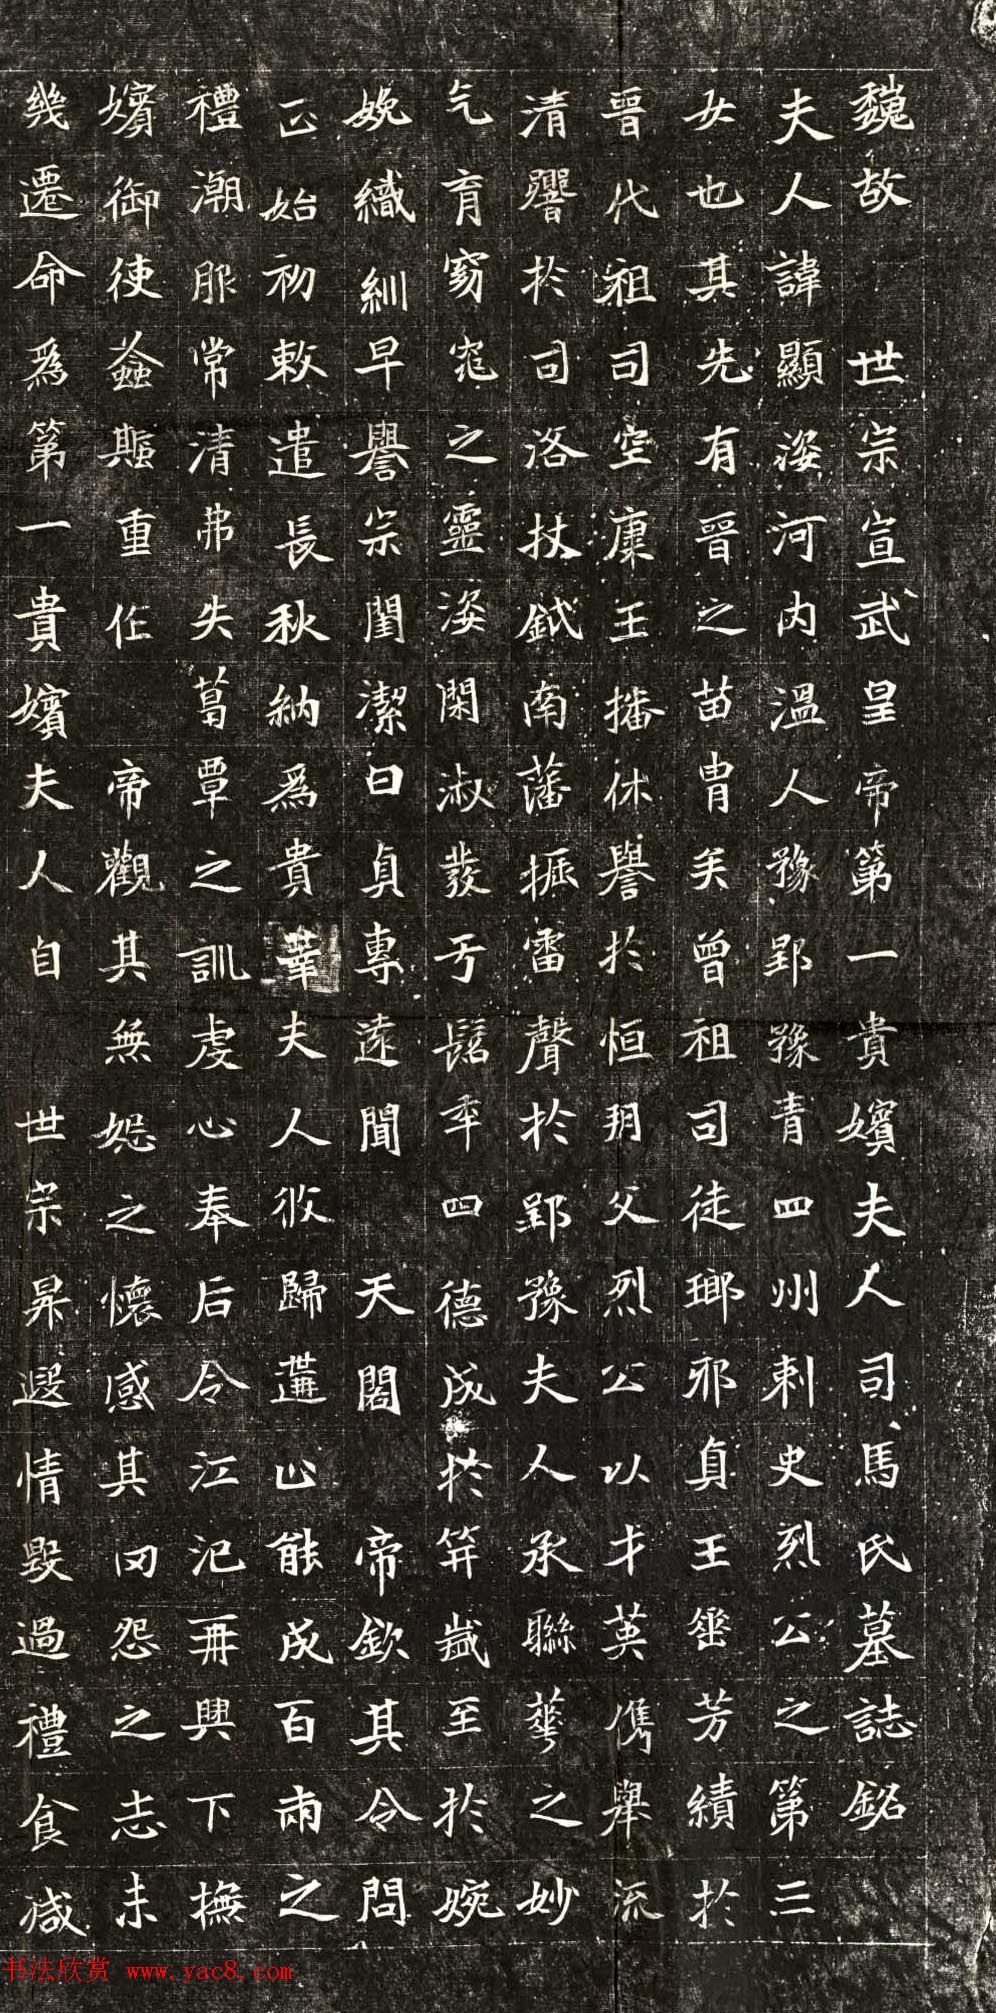 魏故　世宗宣武皇帝第一貴嬪夫人司馬氏墓誌銘
夫人諱顯姿河內溫人豫郢豫青四州刺史烈公之第三
女也其先有晉之苗胄矣曾祖司徒瑯邪貞王垂芳績於
晉代祖司空康王播休譽於恒朔父烈公以才英儁舉流
清響於司洛杖鉞南藩振雷聲於郢豫夫人承聯華之妙
气育窈窕之靈姿閑淑發于髫年四德成於笄歲至於婉
娩織紃早譽宗閨潔白貞專遠聞　天閣　帝欽其令問
正始初敕遣長秋納為貴華夫人攸歸遘止能成百兩之
禮潮服常清弗失葛覃之訓虔心奉后令江汜再興下撫
嬪御使螽斯重作　帝觀其無妬之懷感其罔怨之志未
幾遷命為第一貴嬪夫人自　世宗昇遐情毀過禮食減
书法欣赏 www.yac8.com